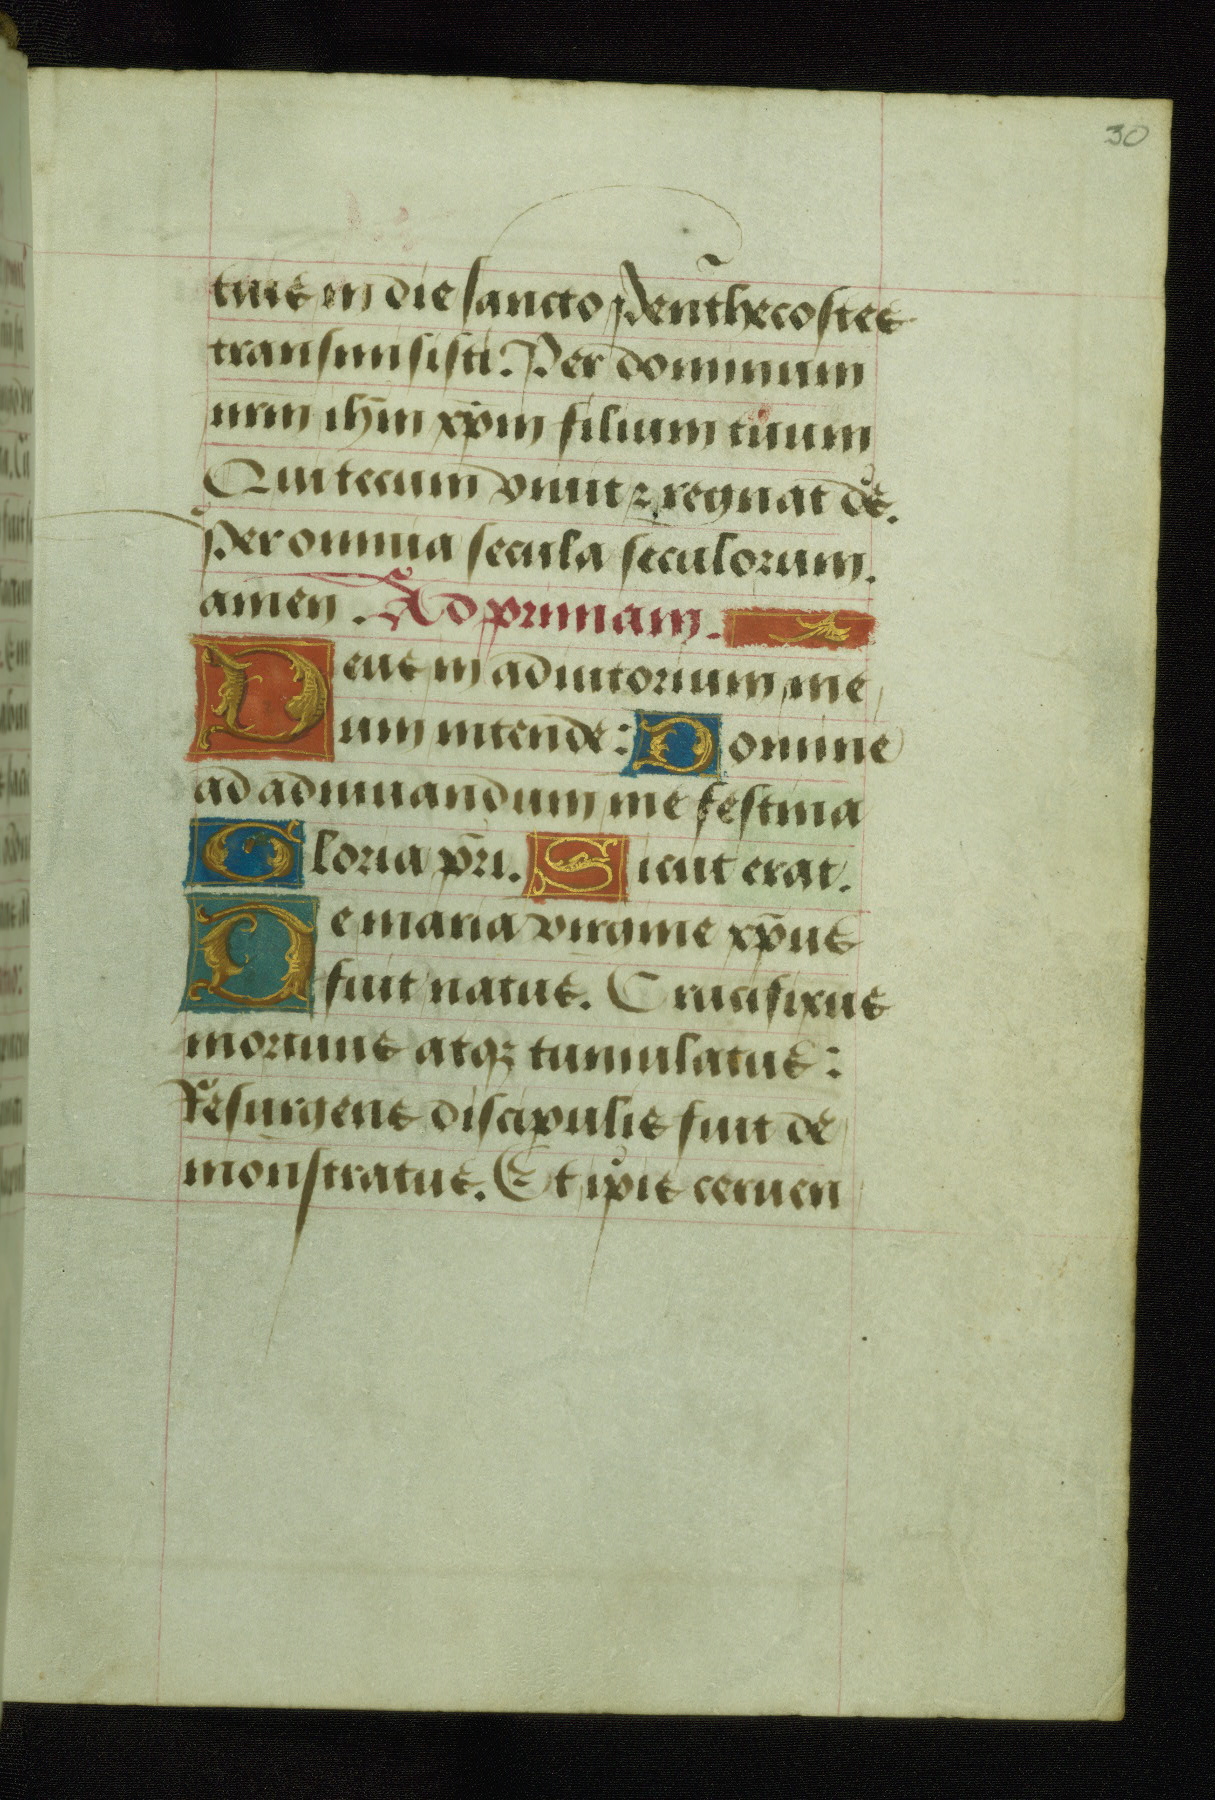 30
tuis in die sancto Penthecostes
transmisisti. Per dominum
nrm ihm xpm filium tuum
Qui tecum viuit ⁊ regnat de᷒.
Per omnia secula seculorum.
amen. Ad primam.
Deus in adiutorium me
um intende: Domine
ad adiuuandum me festina
Gloria pri. Sicut erat.
De maria virgine xpus
fuit natus. Crucifixus
mortuus atqꝫ tumulatus:
Resurgens discipulis fuit de
monstratus. Et ipis cernen